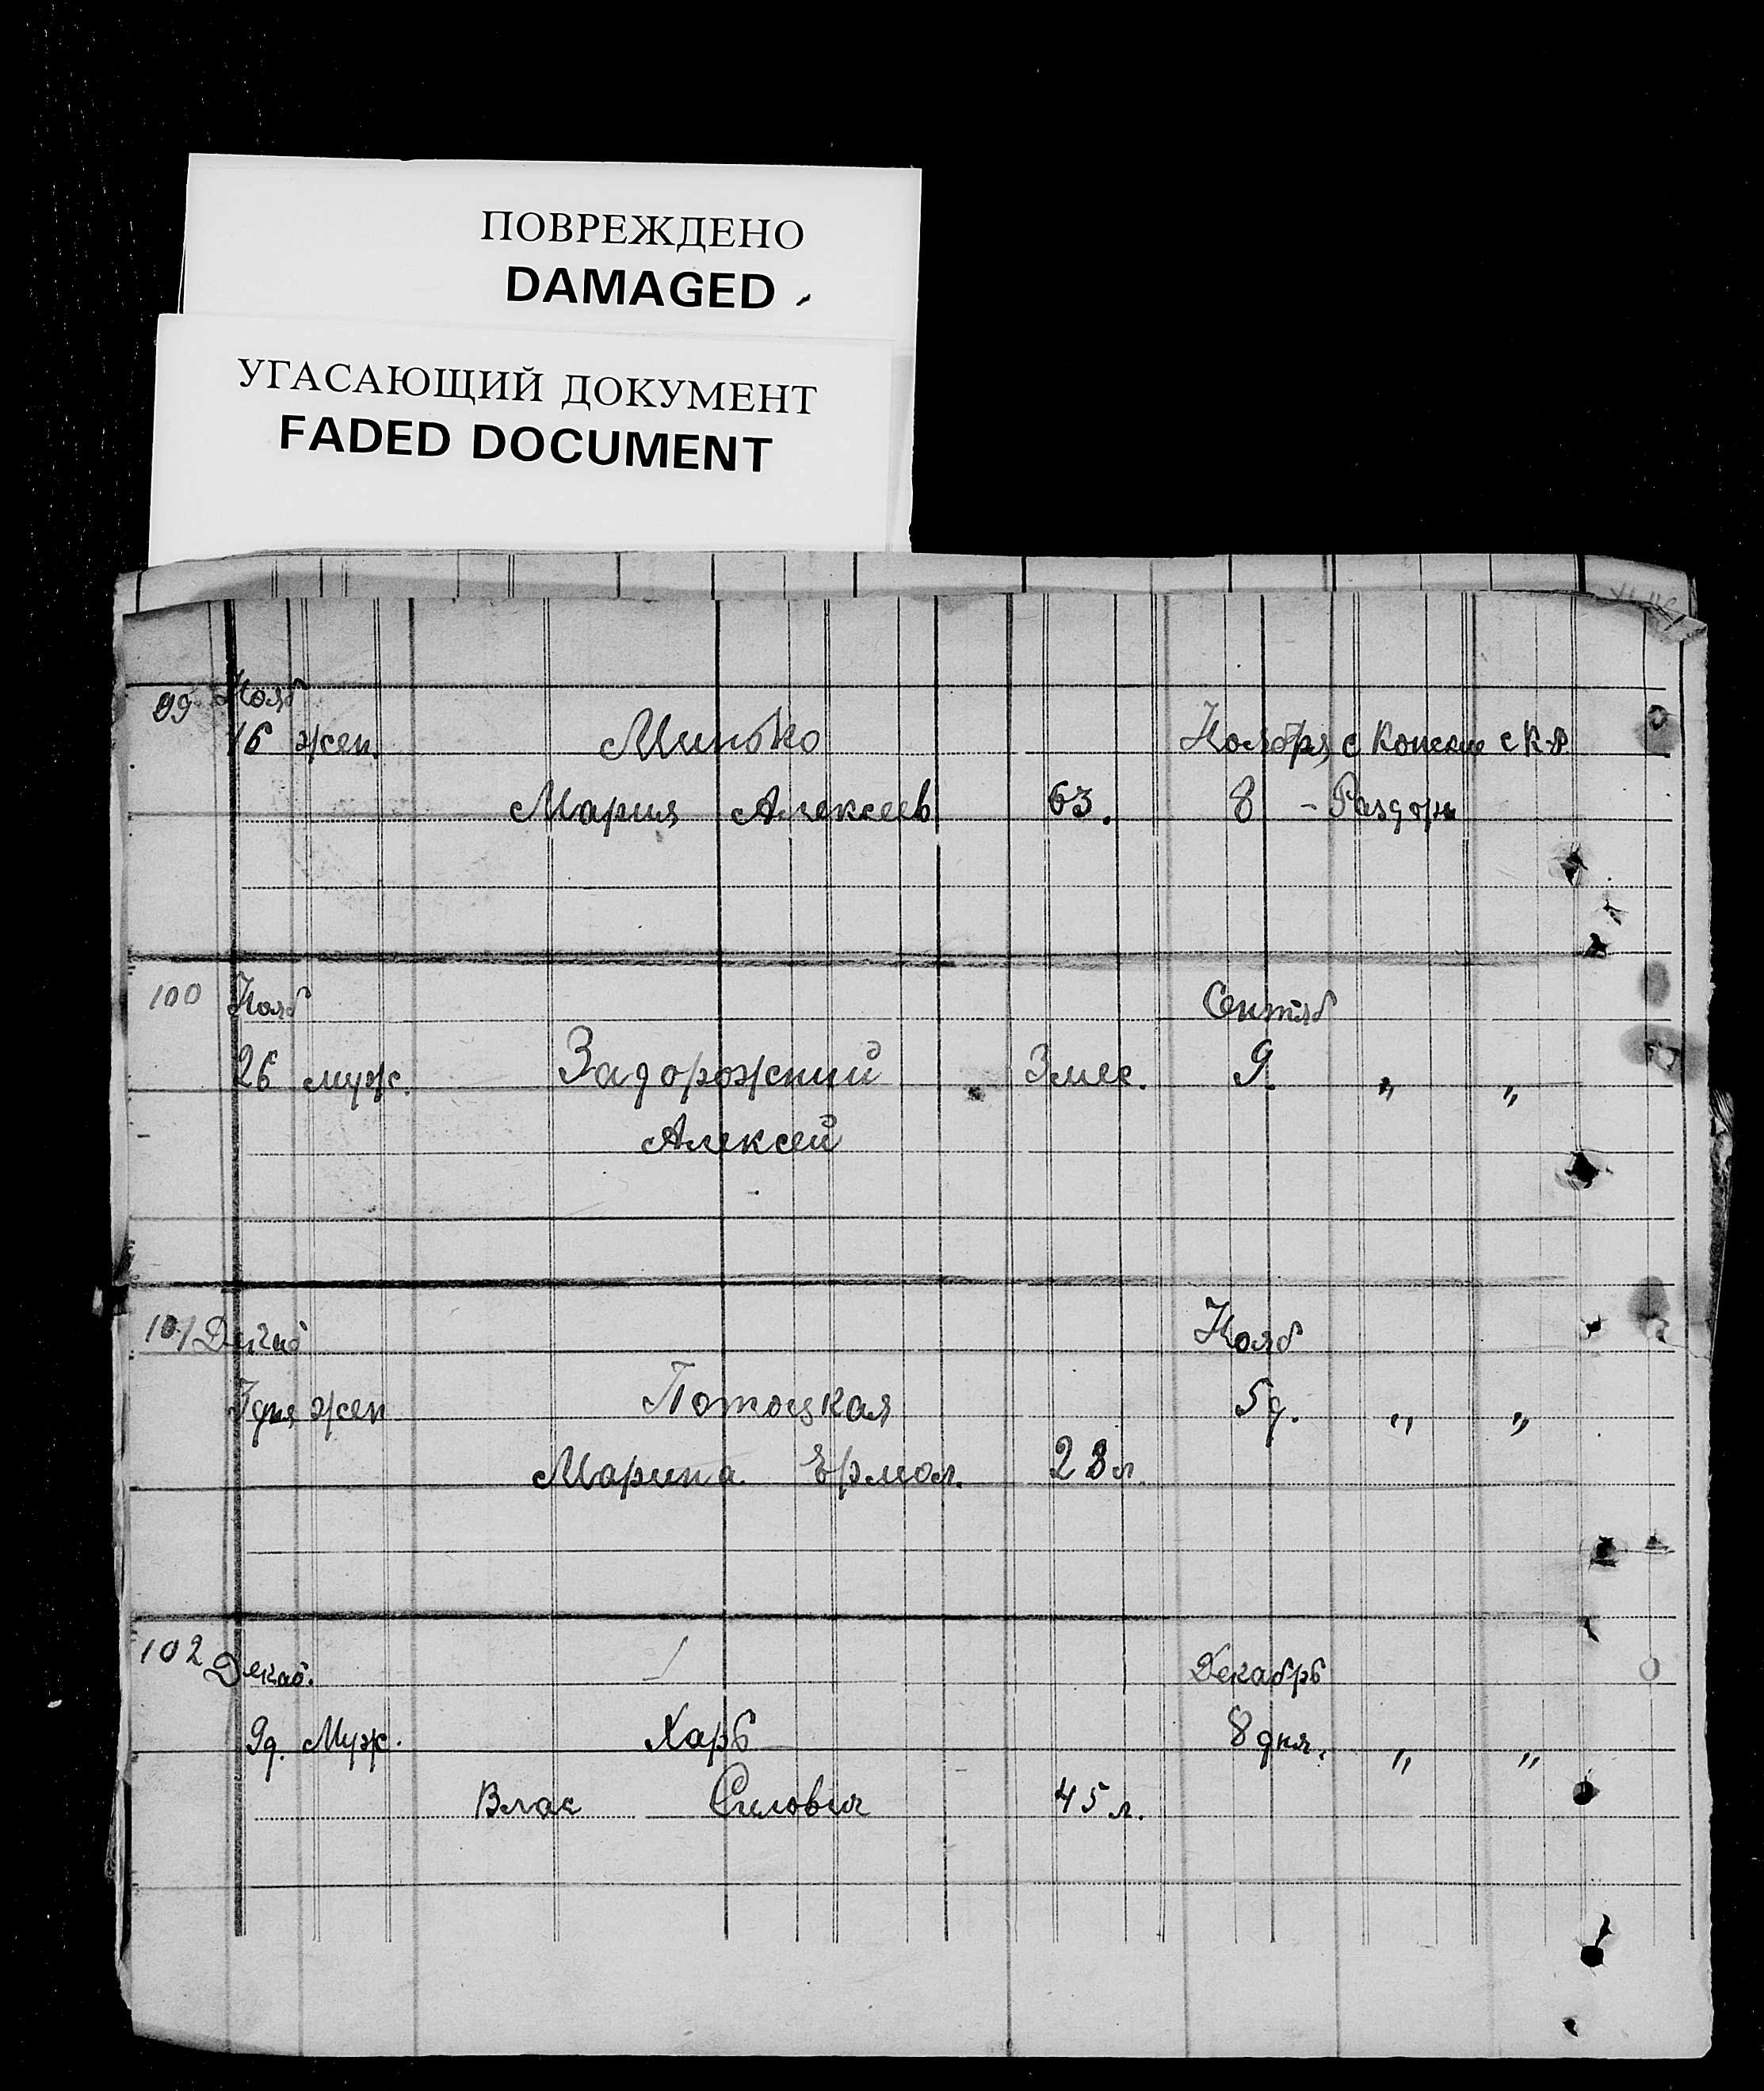 ПОВРЕЖДЕНО
DAMAGED
УГАСАЮЩИЙ ДОКУМЕНТ
FADED DOCUMENT
99 Нояб
16 жен. Минько Ноября с Конские с К-Р
Мария Алексеев 63. 8 - Раздоры
100 Нояб Сентяб
26 муж. Задорожний 3 мес. 9. „ „
Алексей
101 Декаб Нояб
3 дня жен Потоцкая 5 д. „ „
Марина Ермол. 28 л.
102 Декаб. Декабрь
9 д. Муж. Харь 8 дня. „ „
Влас Силович 45 л.